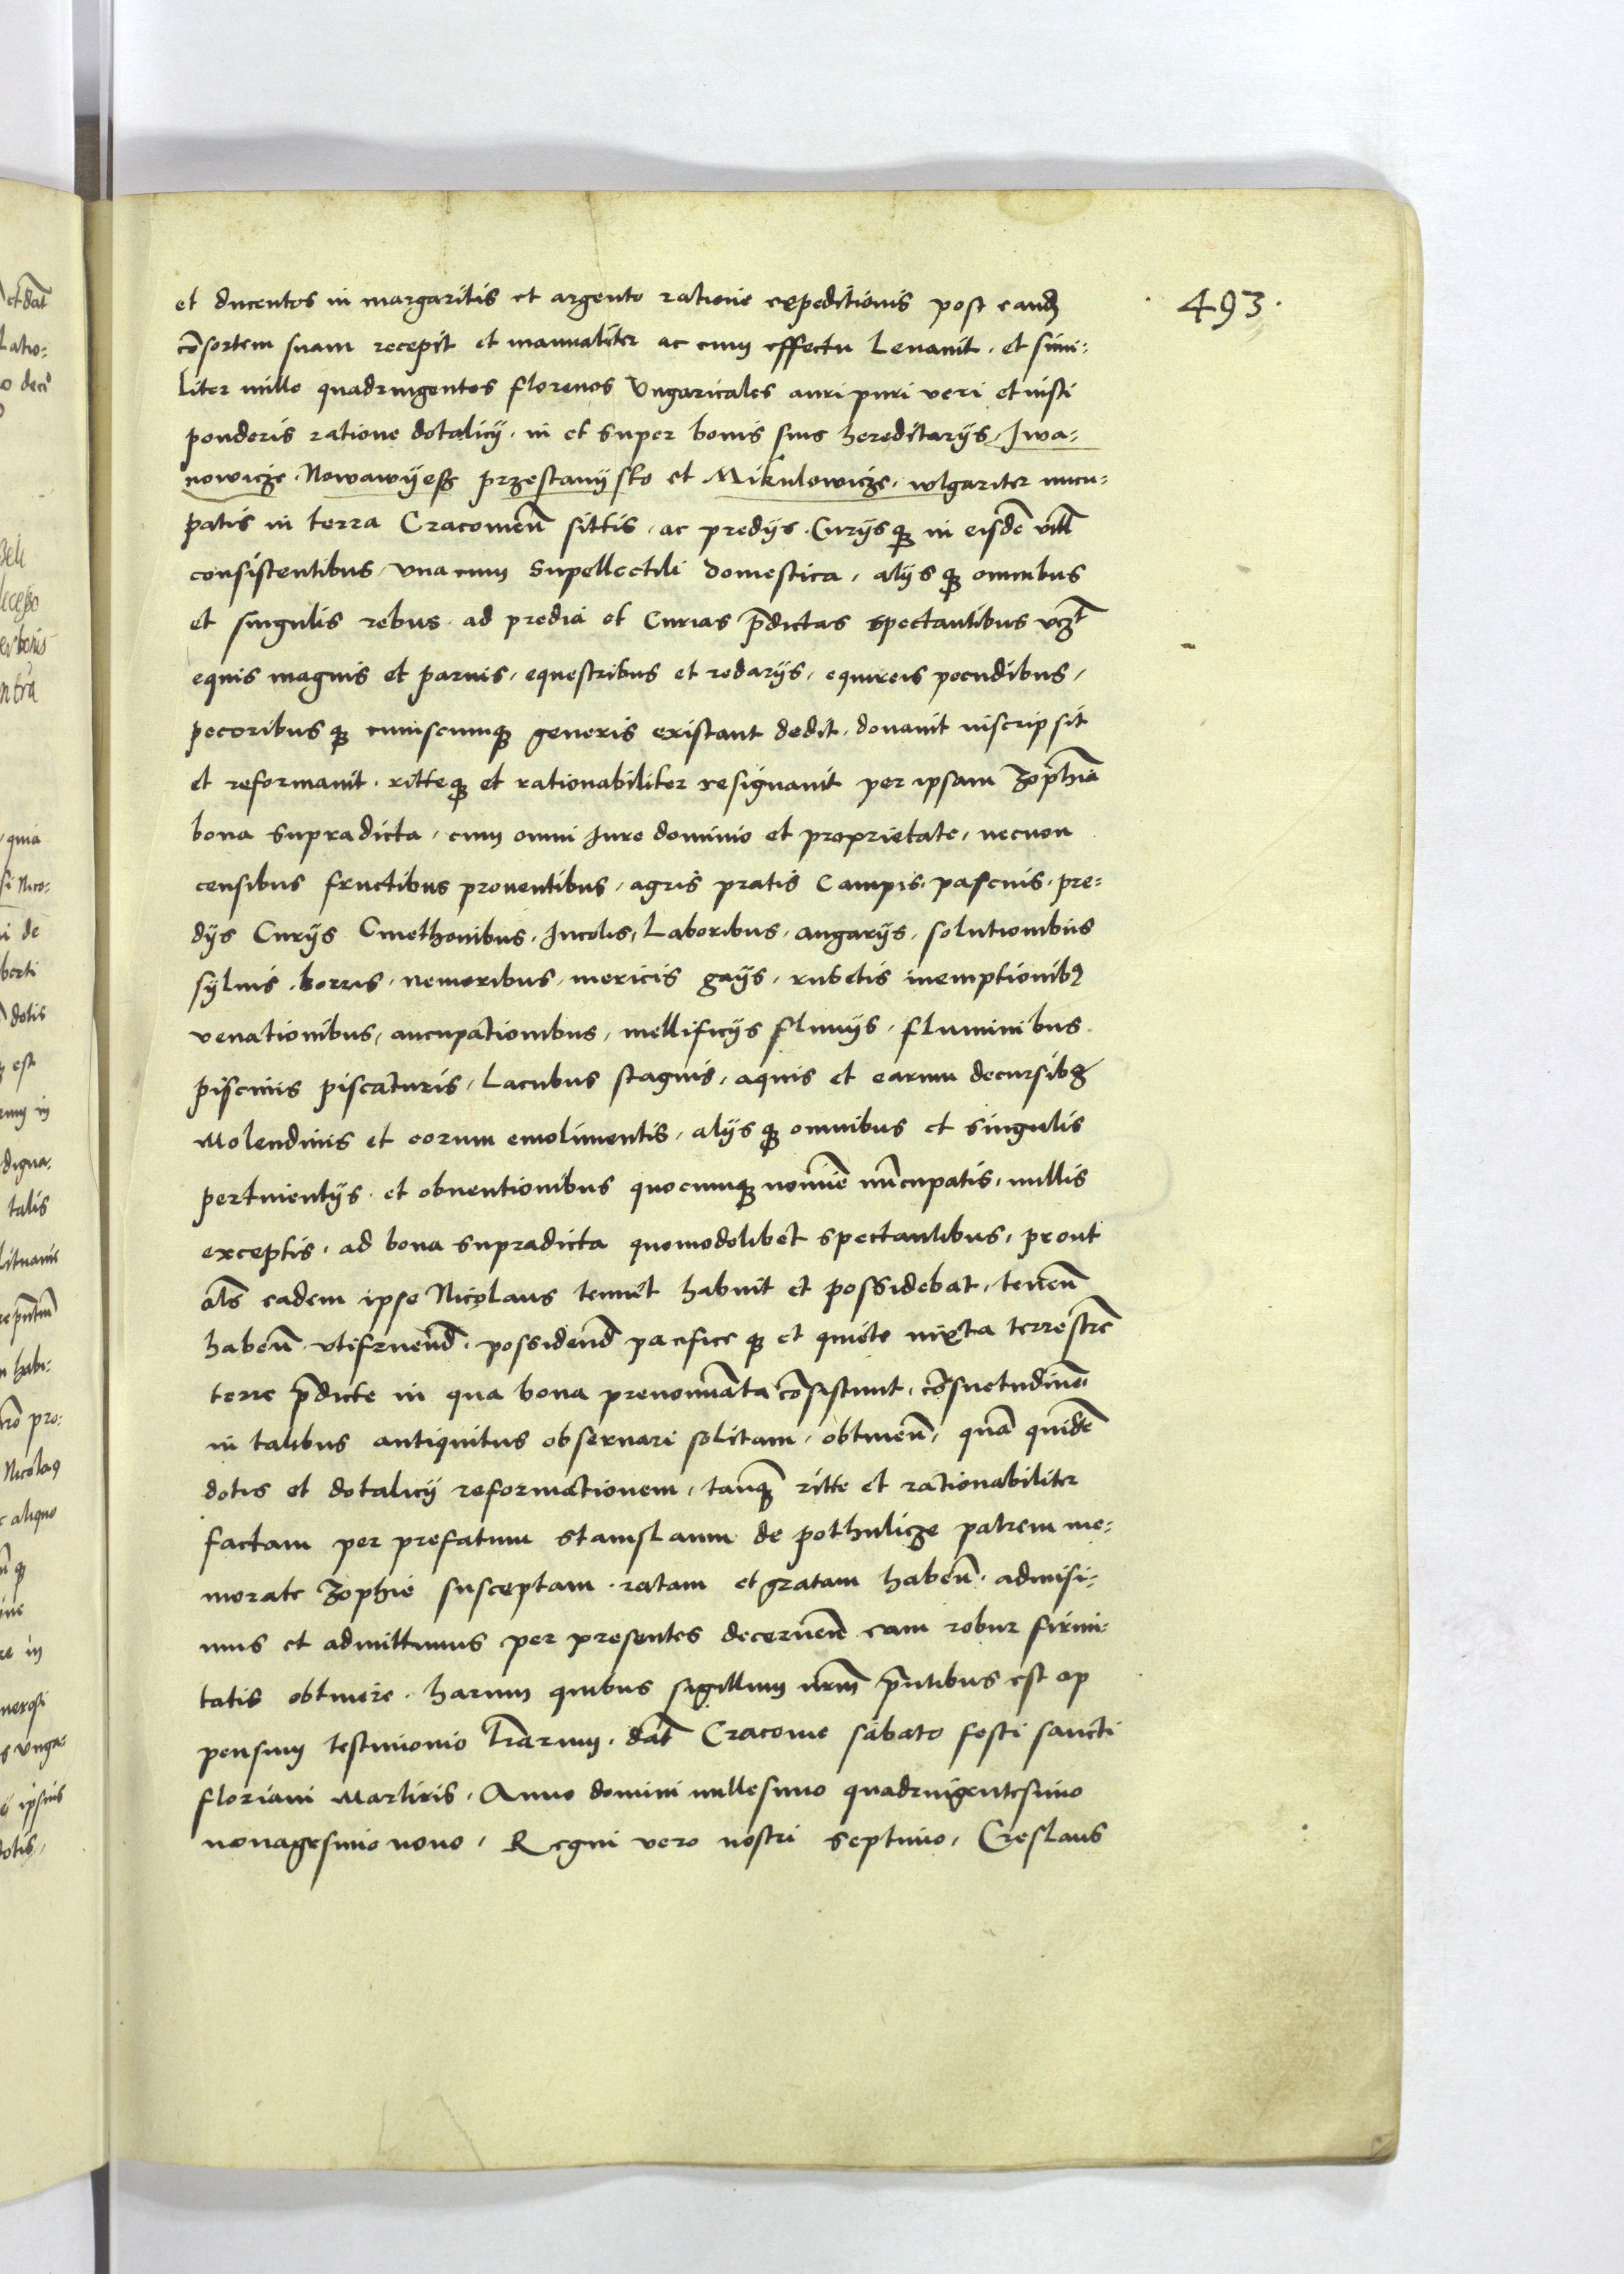 493.
et ducentos in margaritis et argento ratione expeditionis post eandē
cōsortem suam recepit et manualiter ac cum effectu Leuauit. et simi:
liter mille quadringentos florenos Vngaricales auri puri veri et iusti
ponderis ratione dotalicij. in et super bonis suis hereditarijs, Jwa:
nowicze. Nowawÿesß przestanÿsko et Mikulowicze. wlgariter nuncu:
patis in terra Cracouieñ sittis, ac predijs. Curijsqꝫ in eisdē vill̃
consistentibus, vna cum Supellectili domestica, alijsqꝫ omnibus
et singulis rebus ad predia et Curias p̄dictas spectantibus vcꝫt
equis magnis et paruis, equestribus et redarijs, equireis pecudibus,
pecoribusqꝫ cuiuscumqꝫ generis existant dedit. donauit inscripsit
et reformauit. ritteqꝫ et rationabiliter resignauit per ipsam Zophiā
bona supradicta, cum omni Jure dominio et proprietate, necnon
censibus fructibus prouentibus, agris pratis Campis. pascuis. pre:
dijs Curijs Cmethonibus, Jncolis, Laboribus, angarijs, solutionibus
syluis. borris, nemoribus, mericis gaijs, rubetis inemptionibꝰ
venationibus, aucupationibus, mellificijs fluuijs, fluminibus
piscinis piscaturis, Lacubus stagnis, aquis et earum decursibꝫ
Molendinis et eorum emolimentis, alijsqꝫ omnibus et singulis
pertinentijs. et obuentionibus quocumqꝫ nomīe nūcupatis, nullis
exceptis, ad bona supradicta quomodolibet spectantibus, prout
al̄s eadem ipse Nicolaus tenuit habuit et possidebat, teneñ
habeñ. vtifrueñd. possideñd pacificeqꝫ et quiete iuxta terrestrē
terre p̄dicte in qua bona prenomīata cōsistunt, cōsuetudinē
in talibus antiquitus obseruari solitam, obtineñ, quā quidē
dotis et dotalicij reformationem, tanqꝫ ritte et rationabiliter
factam per prefatum Stanislaum de pothulicze patrem me:
morate Zophie susceptam. ratam et gratam habeñ. admisi:
mus et admittimus per presentes decerneñ eam robur firmi:
tatis obtinere. harum quibus sigillum nr̄m p̄ntibus est ap
pensum testimonio l̄rarum. dat̄ Cracouie sabato festi sancti
floriani Martiris. Anno domini millesimo quadringentesimo
nonagesimo nono, Regni vero nostri septimo, Creslaus